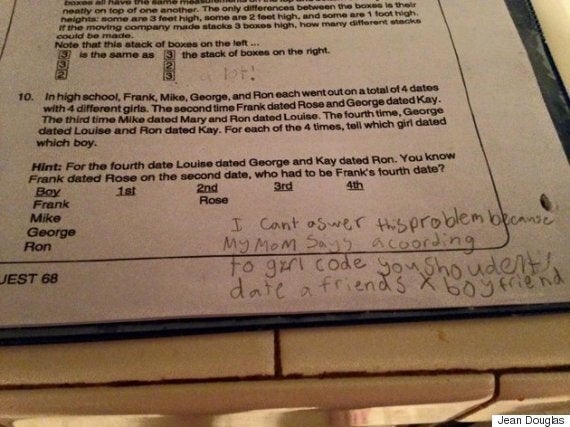 boxes all have the same measurements on the top and
neatly on top of one another. The only differences between the boxes is their
heights: some are 3 feet high, some are 2 feet high, and some are 1 foot high.
If the moving company made stacks 3 boxes high, how many different stacks
could be made.
Note that this stack of boxes on the left ...
3 is the same as 3 the stack of boxes on the right.
3 2
2 3
a lot!
10. In high school, Frank, Mike, George, and Ron each went out on a total of 4 dates
with 4 different girls. The second time Frank dated Rose and George dated Kay.
The third time Mike dated Mary and Ron dated Louise. The fourth time, George
dated Louise and Ron dated Kay. For each of the 4 times, tell which girl dated
which boy.
Hint: For the fourth date Louise dated George and Kay dated Ron. You know
Frank dated Rose on the second date, who had to be Frank's fourth date?
Boy 1st 2nd 3rd 4th
Frank Rose
Mike
George
Ron
I cant aswer this problem because
My Mom Says acoording
to girl code you shoudent
date a friends x boyfriend
UEST 68
Jean Douglas